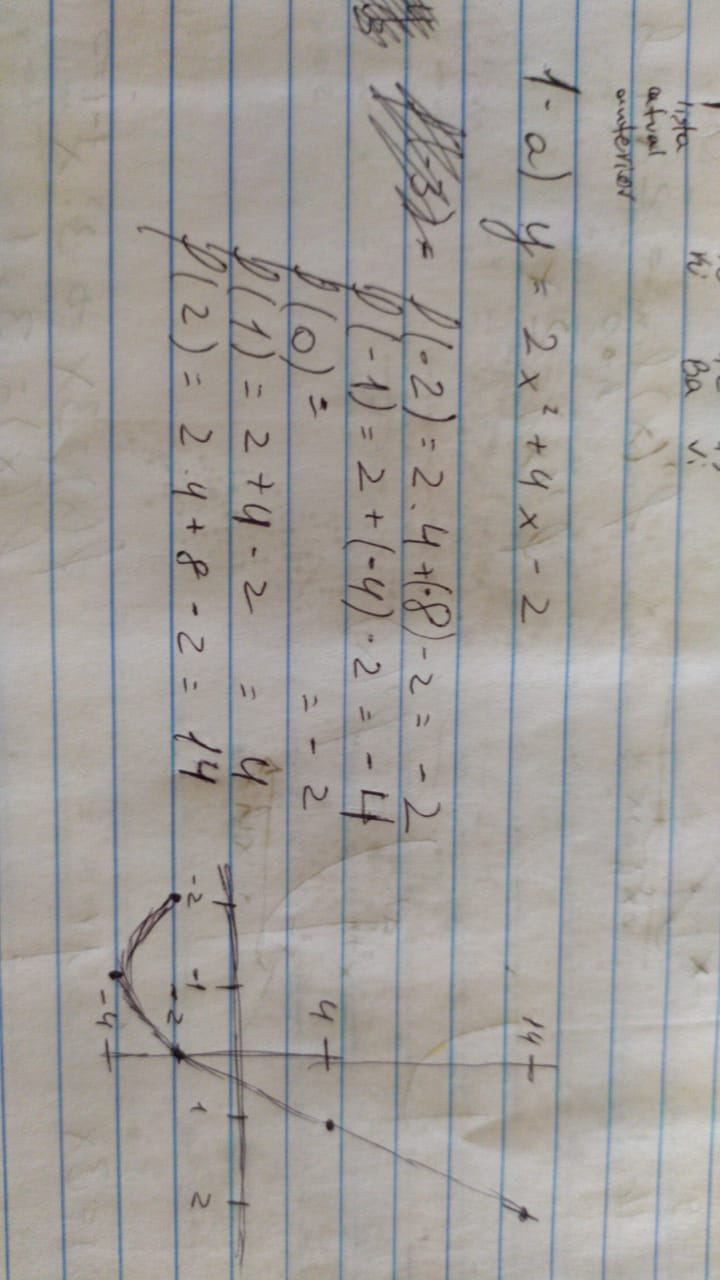 lista
atual
anterior
Ba vi
1- a) y = 2x² + 4x - 2
-3) =
p(-2) = 2.4+(-8)-2 = -2
p(-1) = 2+(-4)-2 = -4
p(0) = = -2
p(1) = 2+4-2 = 4
p(2) = 2.4+8-2 = 14
14
4
-2 -1 1 2
-2
-4